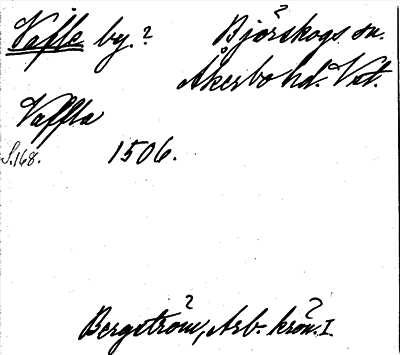 Valla by? Björskogs sn.
Åkerbo hd. Vstm.
Vaffla
S.168. 1506.
Bergström, Arb. krön. I